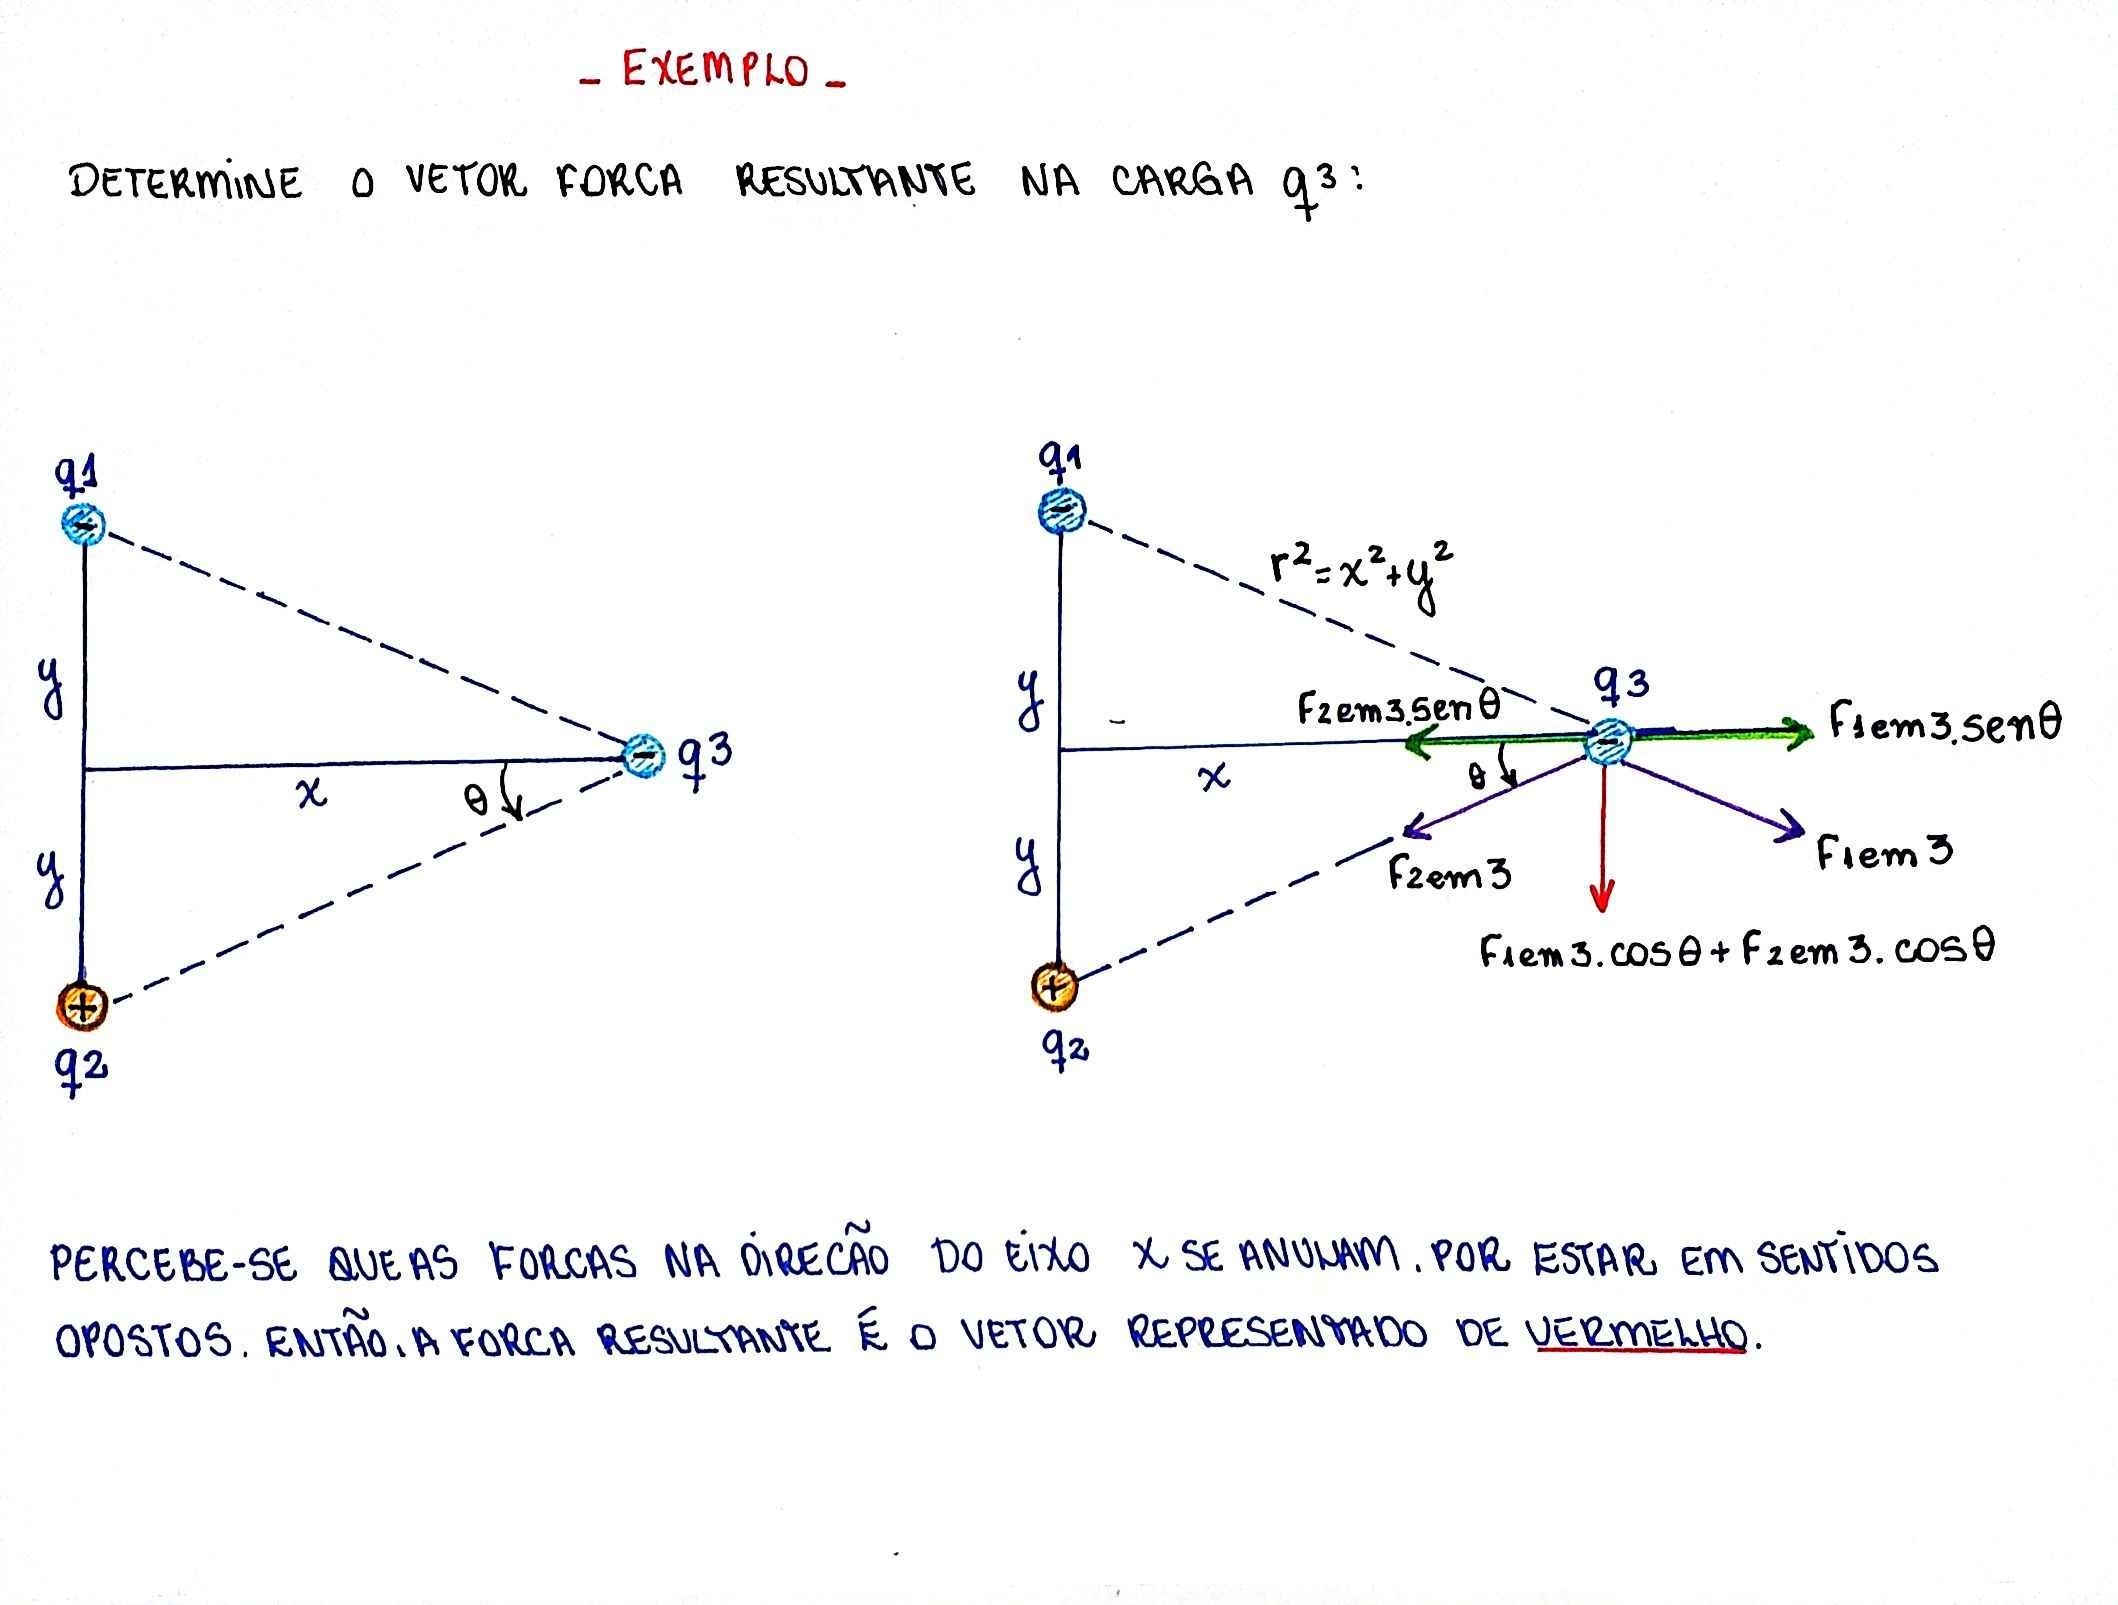 - EXEMPLO -
DETERMINE O VETOR FORCA RESULTANTE NA CARGA q3:
q1
y
x
θ
q3
y
q2
q1
r²=x²+y²
y
F2em3.senθ
q3
F1em3.senθ
x
θ
y
F2em3
F1em3
F1em3.cosθ+F2em3.cosθ
q2
PERCEBE-SE QUE AS FORCAS NA DIRECÃO DO EIXO X SE ANULAM. POR ESTAR EM SENTIDOS
OPOSTOS. ENTÃO, A FORCA RESULTANTE É O VETOR REPRESENTADO DE VERMELHO.